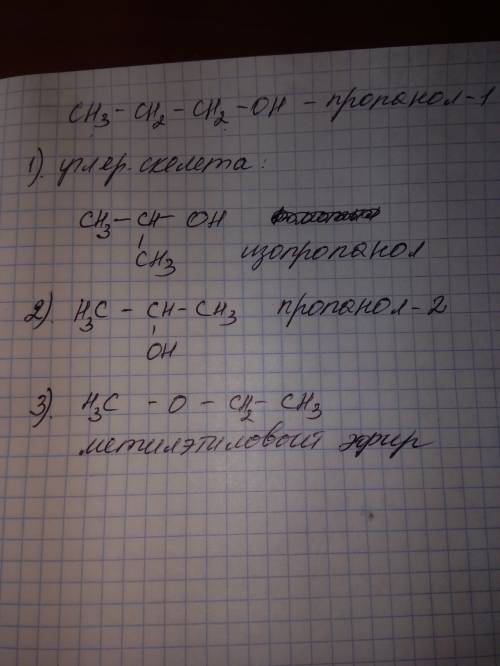 CH₃ – CH₂ – CH₂ – OH – пропанол-1
1). углер. скелета:
CH₃ – CH – OH
CH₃ изопропанол
2). H₃C – CH – CH₃ пропанол-2
OH
3). H₃C – O – CH₂ – CH₃
метилэтиловый эфир